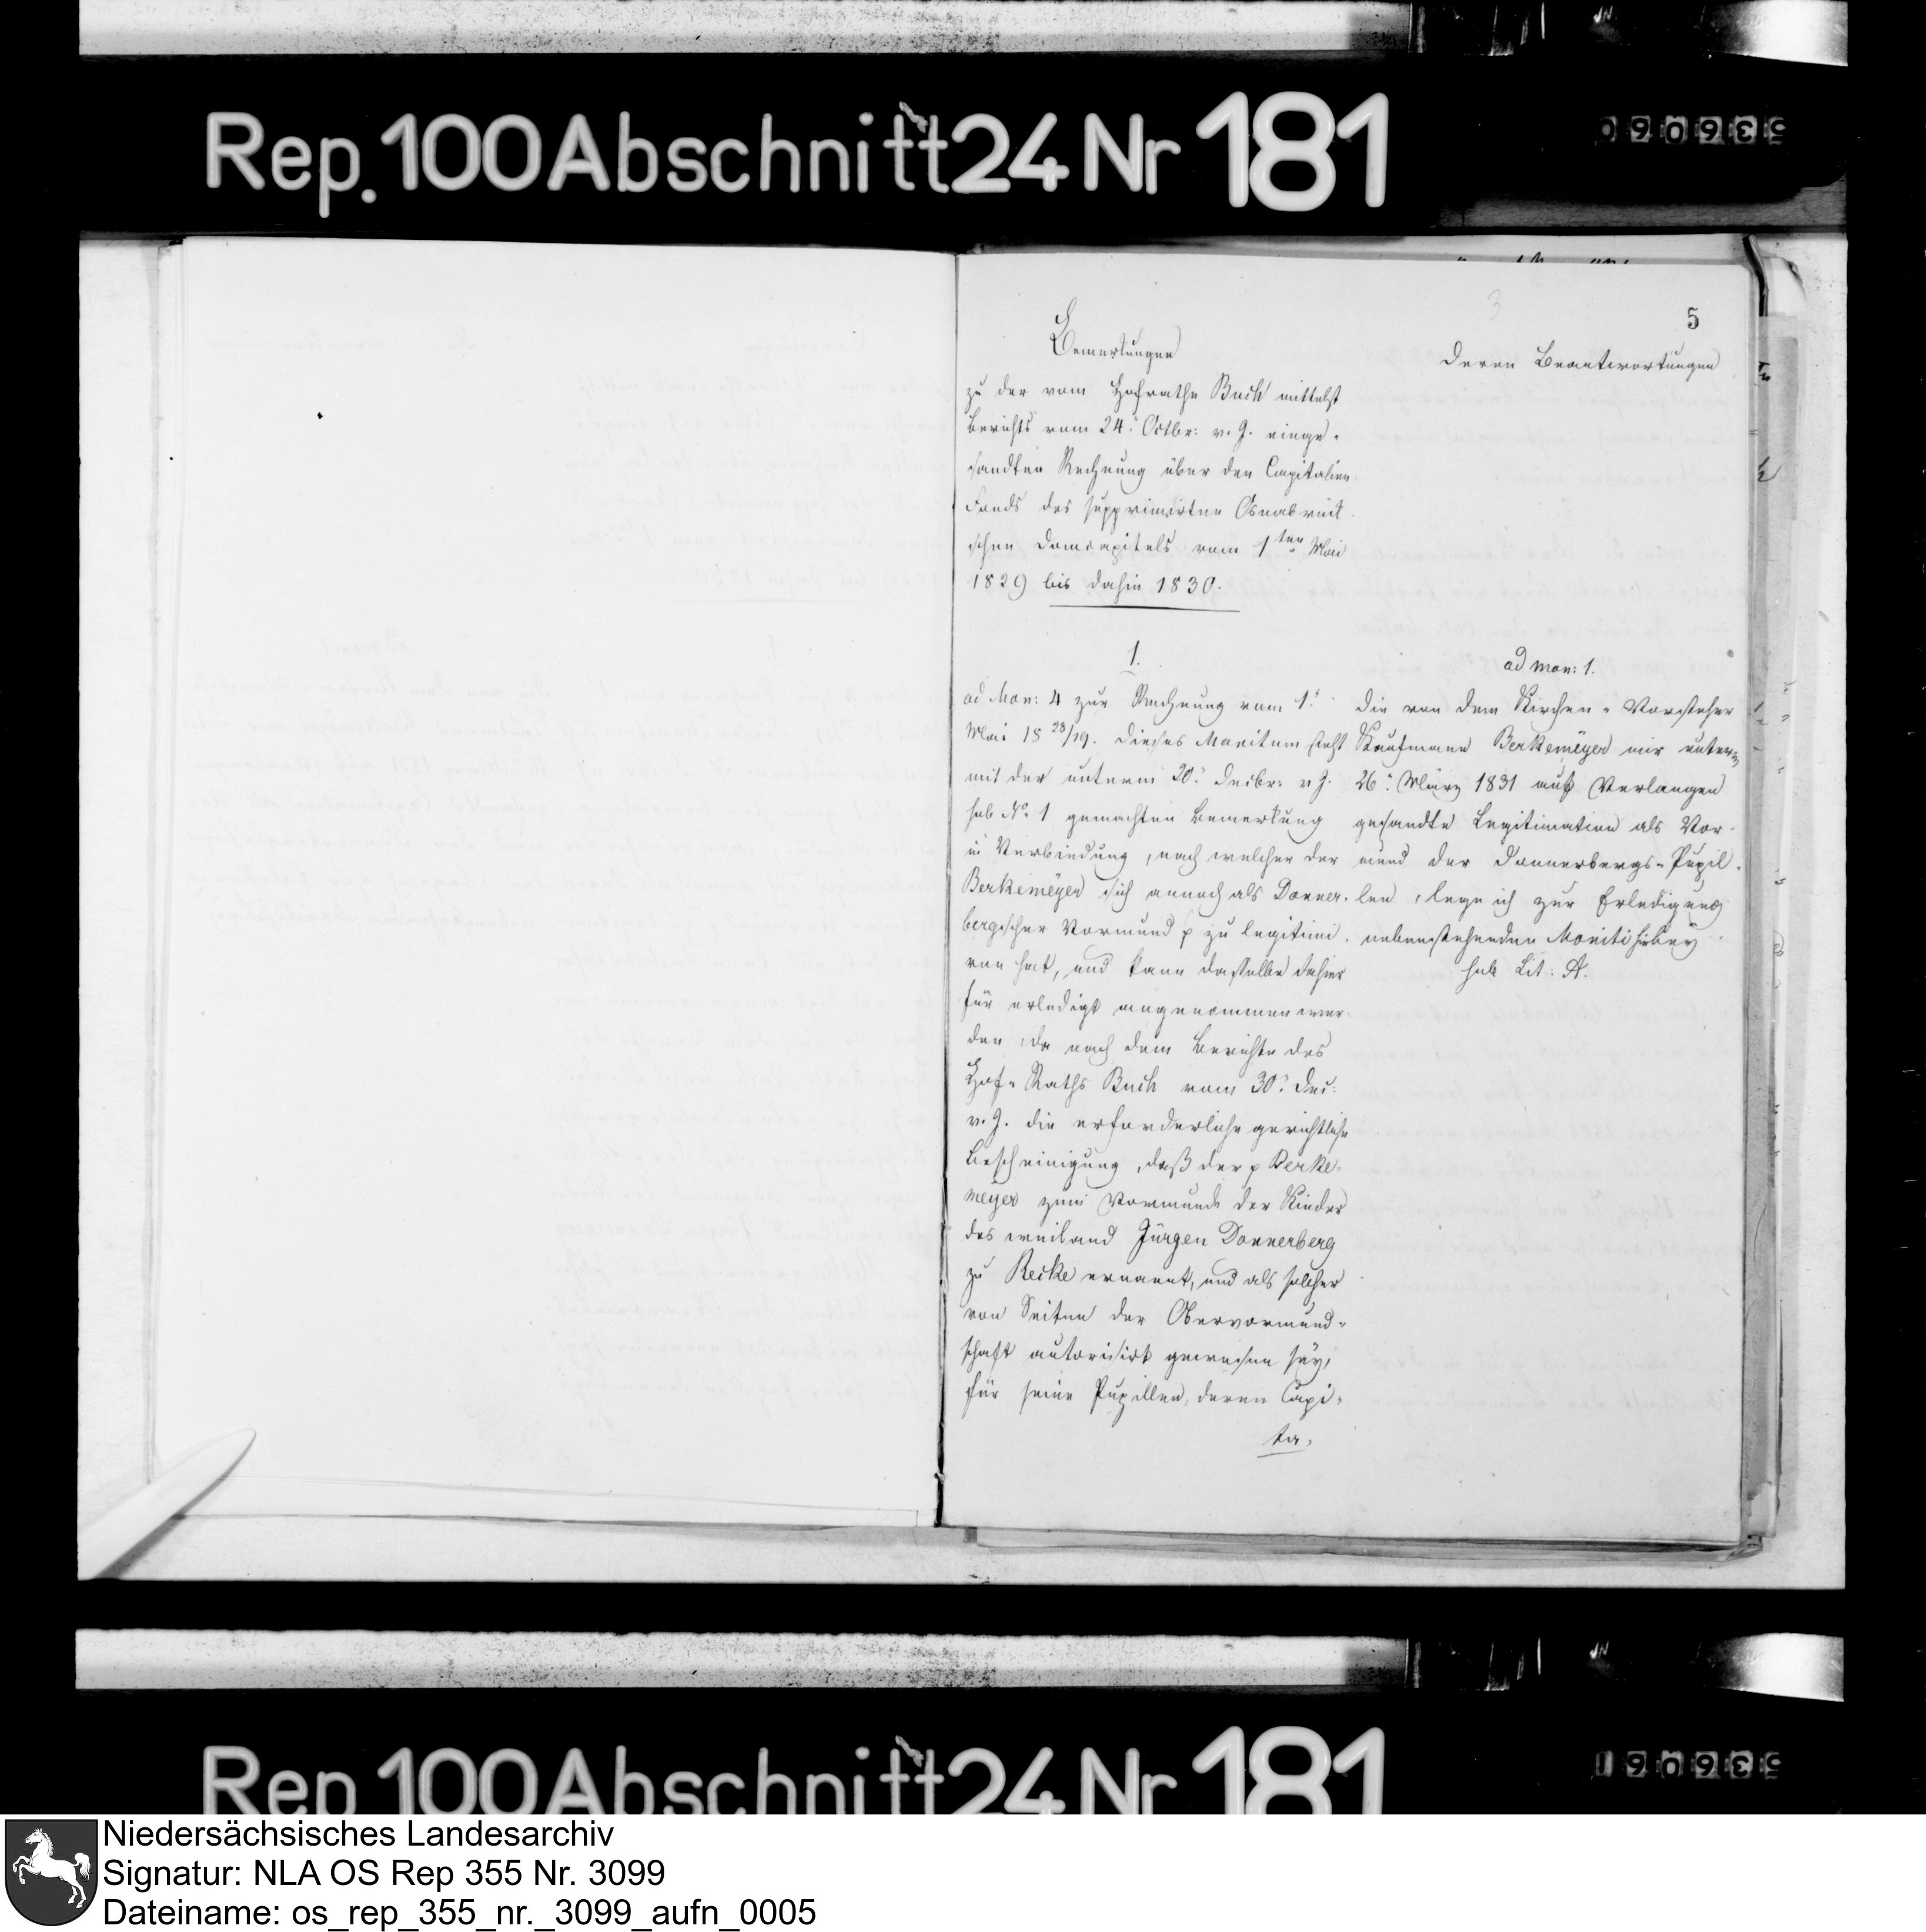 Rep. 100 Abschnitt 24 Nr 181
536060
5
3
Bemerkungen
zu der vom Hofrathe Buch mittelst
Berichts vom 24t Octbr: v. J. einge-
sandten Rechnung über den Capitalien
Fonds des supprimirten Osnabrück
schen Domcapitels vom 1ten Mai
1829 bis dahin 1830.
1.
ad Mon: 4 zur Rechnung vom 1t
Mai 18 28/29. Dieses Monitum steht
mit der unterm 20t Decbr: v J.
sub No 1 gemachten Bemerkung
in Verbindung, nach welcher der
Berkemeyer sich annoch als Donner-
bergscher Vormund p zu legitimi-
ren hat, und kann dasselbe daher
für erledigt angenommen wer-
den, da nach dem Berichte des
Hof-Raths Buch vom 30t Dec:
v. J. die erforderliche gerichtliche
Bescheinigung, daß der p Berke-
meyer zum Vormunde der Kinder
des weiland Jürgen Donnerberg
zu Recke ernannt, und als solcher
von Seiten der Obervormund-
schaft autorisirt gewesen sey,
für seine Pupillen, deren Capi-
ta,
Deren Beantwortungen
ad mon: 1.
Die von dem Kirchen-Vorsteher
Kaufmann Berkemeyer mir unterm
26t März 1831 auf Verlangen
gesandte Legitimation als Vor-
mund der Donnerbergs-Pupil-
len, lege ich zur Erledigung
nebenstehenden Moniti hirbey
sub Lit: A.
Rep 100 Abschnitt 24 Nr 181
536061
Niedersächsisches Landesarchiv
Signatur: NLA OS Rep 355 Nr. 3099
Dateiname: os_rep_355_nr._3099_aufn_0005